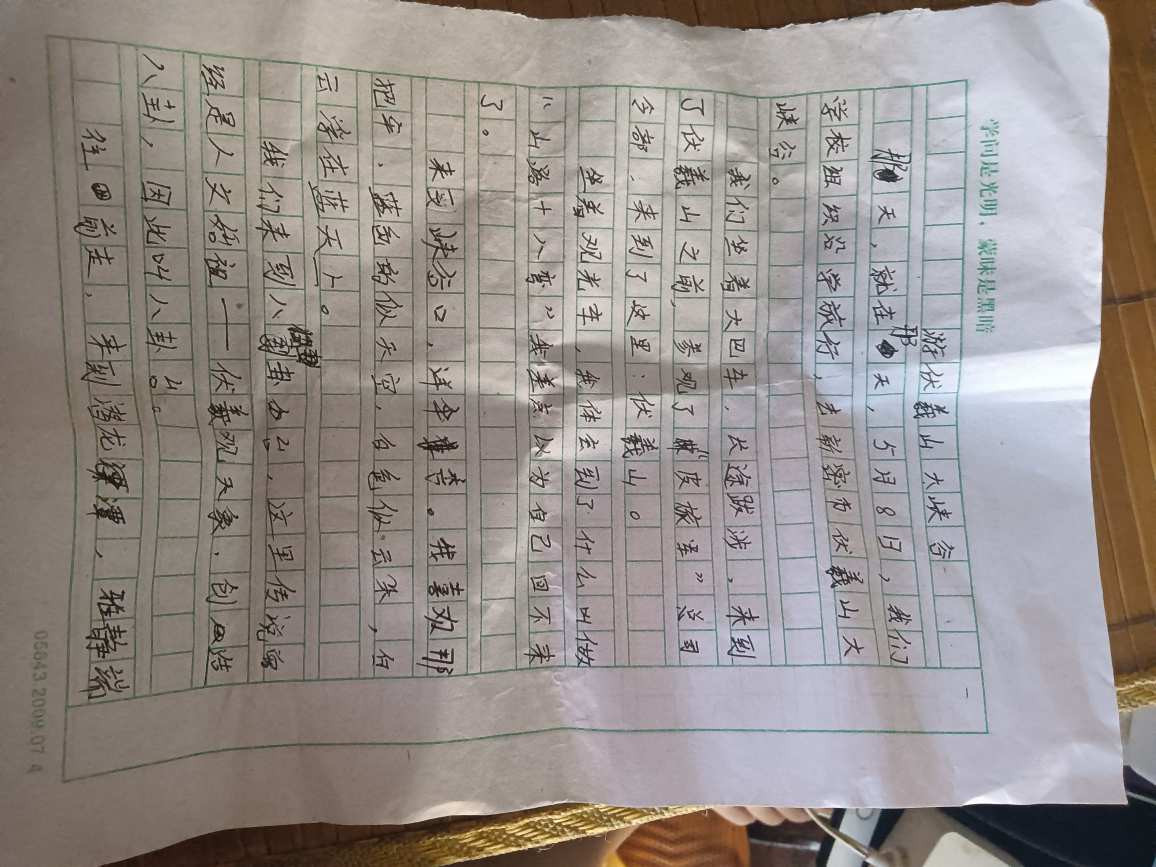 学问是光明，蒙昧是黑暗
游伏羲山大峡谷
那天，就在那天，5月8日，我们
学校组织沿学旅行，去新密市伏羲山大
峡谷。
我们坐着大巴车，长途跋涉，来到
了伏羲山之前，参观了“皮旅军”总司
令部，来到了这里：伏羲山。
坐着观光车，我体会到了什么叫做
“山路十八弯”我差点以为自己回不来
了。
来到峡谷口，连伞。我喜欢那
把伞，蓝色的似天空，白色似云朵，白
云浮在蓝天上。
我们来到八卦台，这里传说曾
经是人文始祖——伏羲观天象，创造
八卦，因此叫八卦台。
往前走，来到潜龙潭，雅静端
05843 2009.07 4